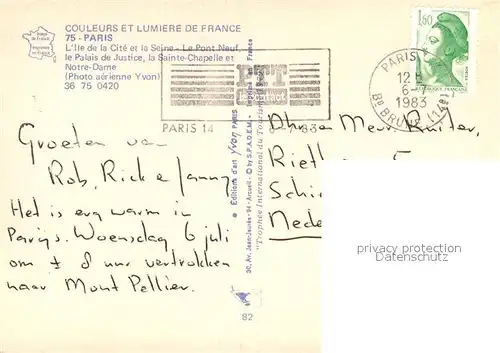 COULEURS ET LUMIERE DE FRANCE
75 - PARIS
L'Ile de la Cité et la Seine - Le Pont Neuf,
le Palais de Justice, la Sainte-Chapelle et
Notre-Dame
(Photo aérienne Yvon)
36 75 0420
PARIS 14
1,60
REPUBLIQUE FRANCAISE
PARIS
12 H
6-
1983
Bd BRUNE (14e)
Groeten van
Rob, Rick e Janny
Het is erg warm in
Parijs. Woensdag 6 juli
om ± 8 uur vertrokken
naar Mont Pellier.
© Editions d'art YVON, PARIS
30, Av. Jean-Jaurès - 94 - Arcueil - © by S.P.A.D.E.M. - France
"Trophée International du Tourisme
82
Dhr en Mevr Ruiter,
Riet
Schi
Nede
privacy protection
Datenschutz